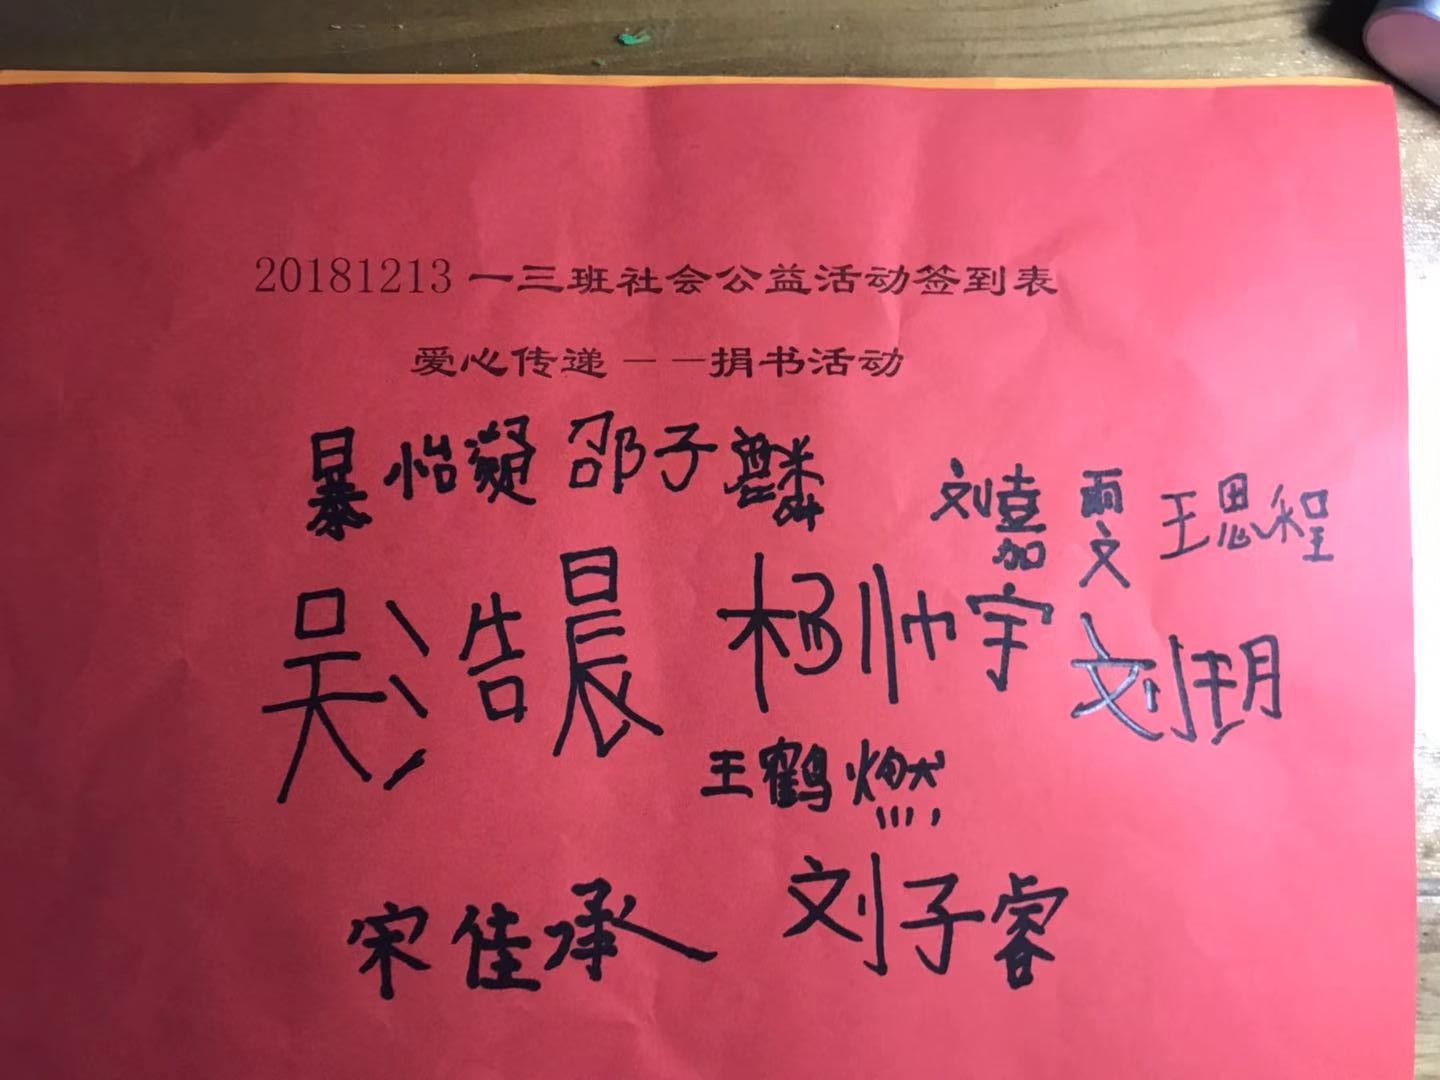 20181213 一三班社会公益活动签到表
爱心传递——捐书活动
暴怡凝 邵子麟 刘嘉雯 王思程
吴浩晨 杨帅宇 刘玥
王鹤燃
宋佳承 刘子睿